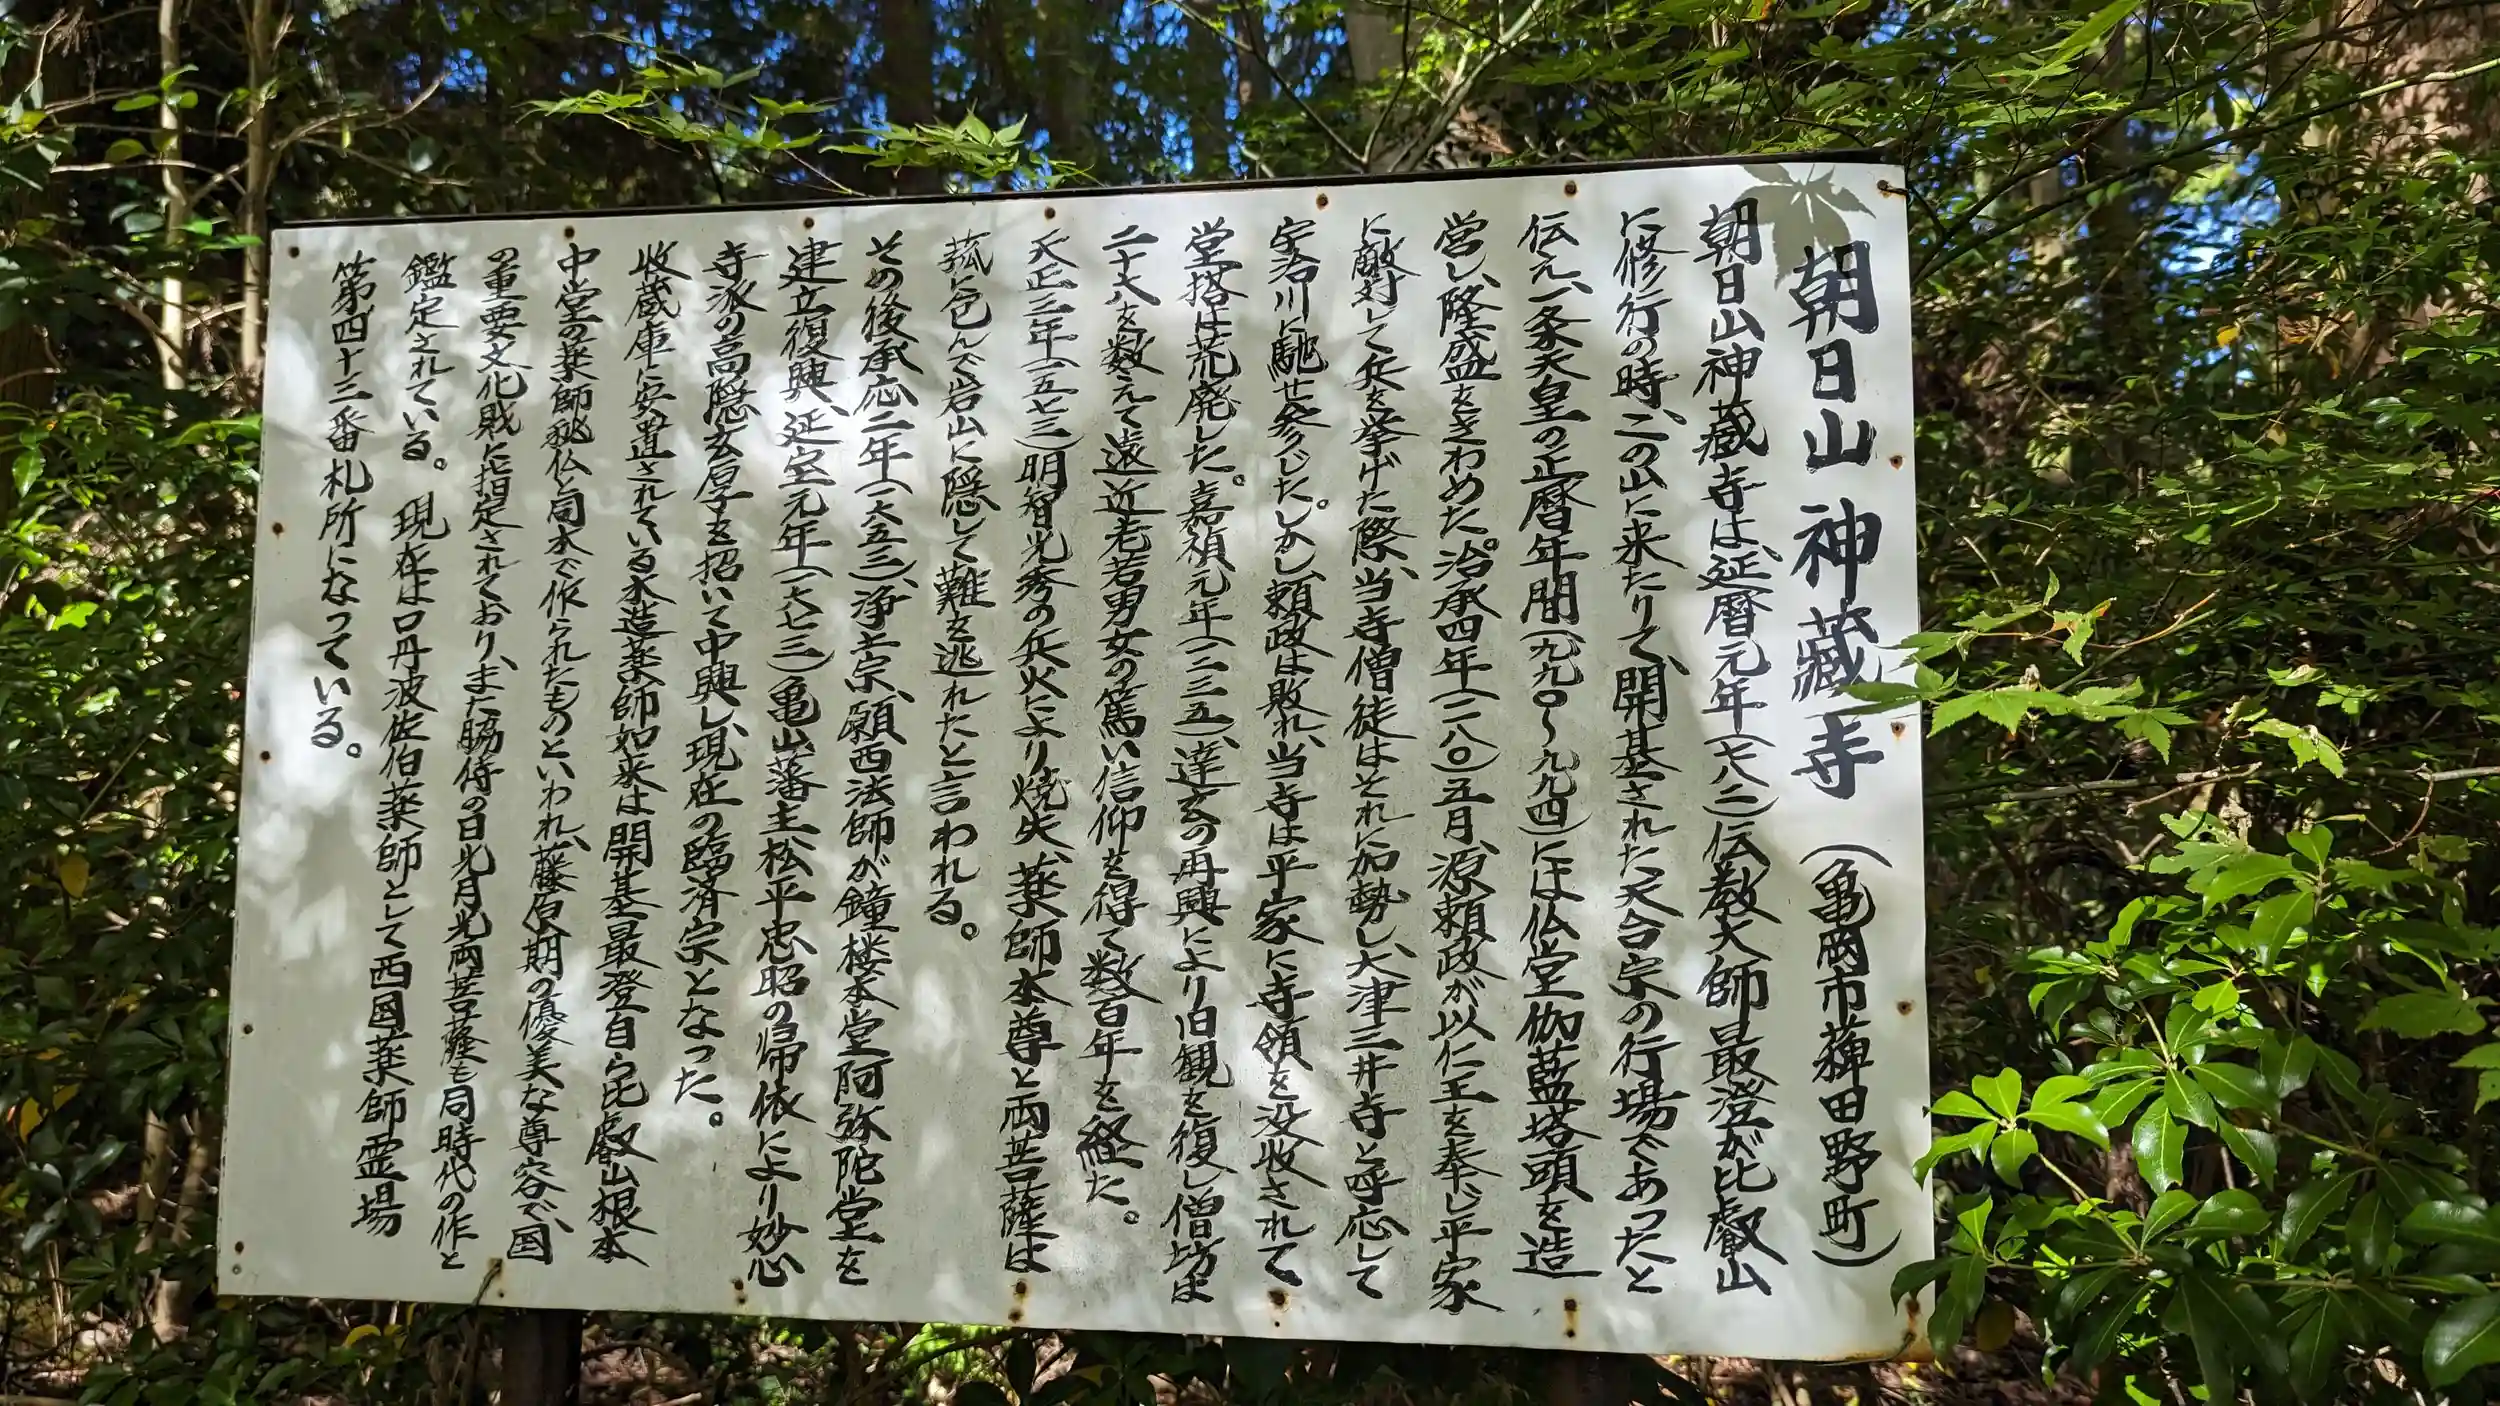 朝日山 神蔵寺 (亀岡市薭田野町)
朝日山神蔵寺は、延暦元年(七八二)伝教大師最澄が比叡山
に修行の時、この山に来たりて、開基された天台宗の行場であったと
伝え、一条天皇の正暦年間(九九〇〜九九四)には仏堂伽藍塔頭を造
営し、隆盛をきわめた。治承四年(一一八〇)五月、源頼政が以仁王を奉じ平家
に敵対して兵を挙げた際、当寺僧徒はそれに加勢し、大津三井寺と呼応して
宇治川に馳せ参じた。しかし、頼政は敗れ、当寺は平家に寺領を没收されて
堂塔は荒廃した。嘉禎元年(一二三五)、達玄の再興により旧観を復し僧坊は
二十八を数えて遠近老若男女の篤い信仰を得て数百年を経た。
天正三年(一五七三)明智光秀の兵火により焼失、薬師本尊と両菩薩は
菰に包んで岩山に隠して難を逃れたと言われる。
その後承応二年(一六五三)、浄土宗、願西法師が鐘楼本堂阿弥陀堂を
建立復興、延宝元年(一六七三)亀山藩主、松平忠昭の帰依により妙心
寺派の高隠玄厚子を招いて中興し、現在の臨済宗となった。
收蔵庫に安置されている木造薬師如来は開基最澄自ら比叡山根本
中堂の薬師秘仏と同木で作られたものといわれ、藤原期の優美な尊容で、国
の重要文化財に指定されており、また脇侍の日光月光両菩薩も同時代の作と
鑑定されている。 現在は口丹波佐伯薬師として西国薬師霊場
第四十三番札所になっている。